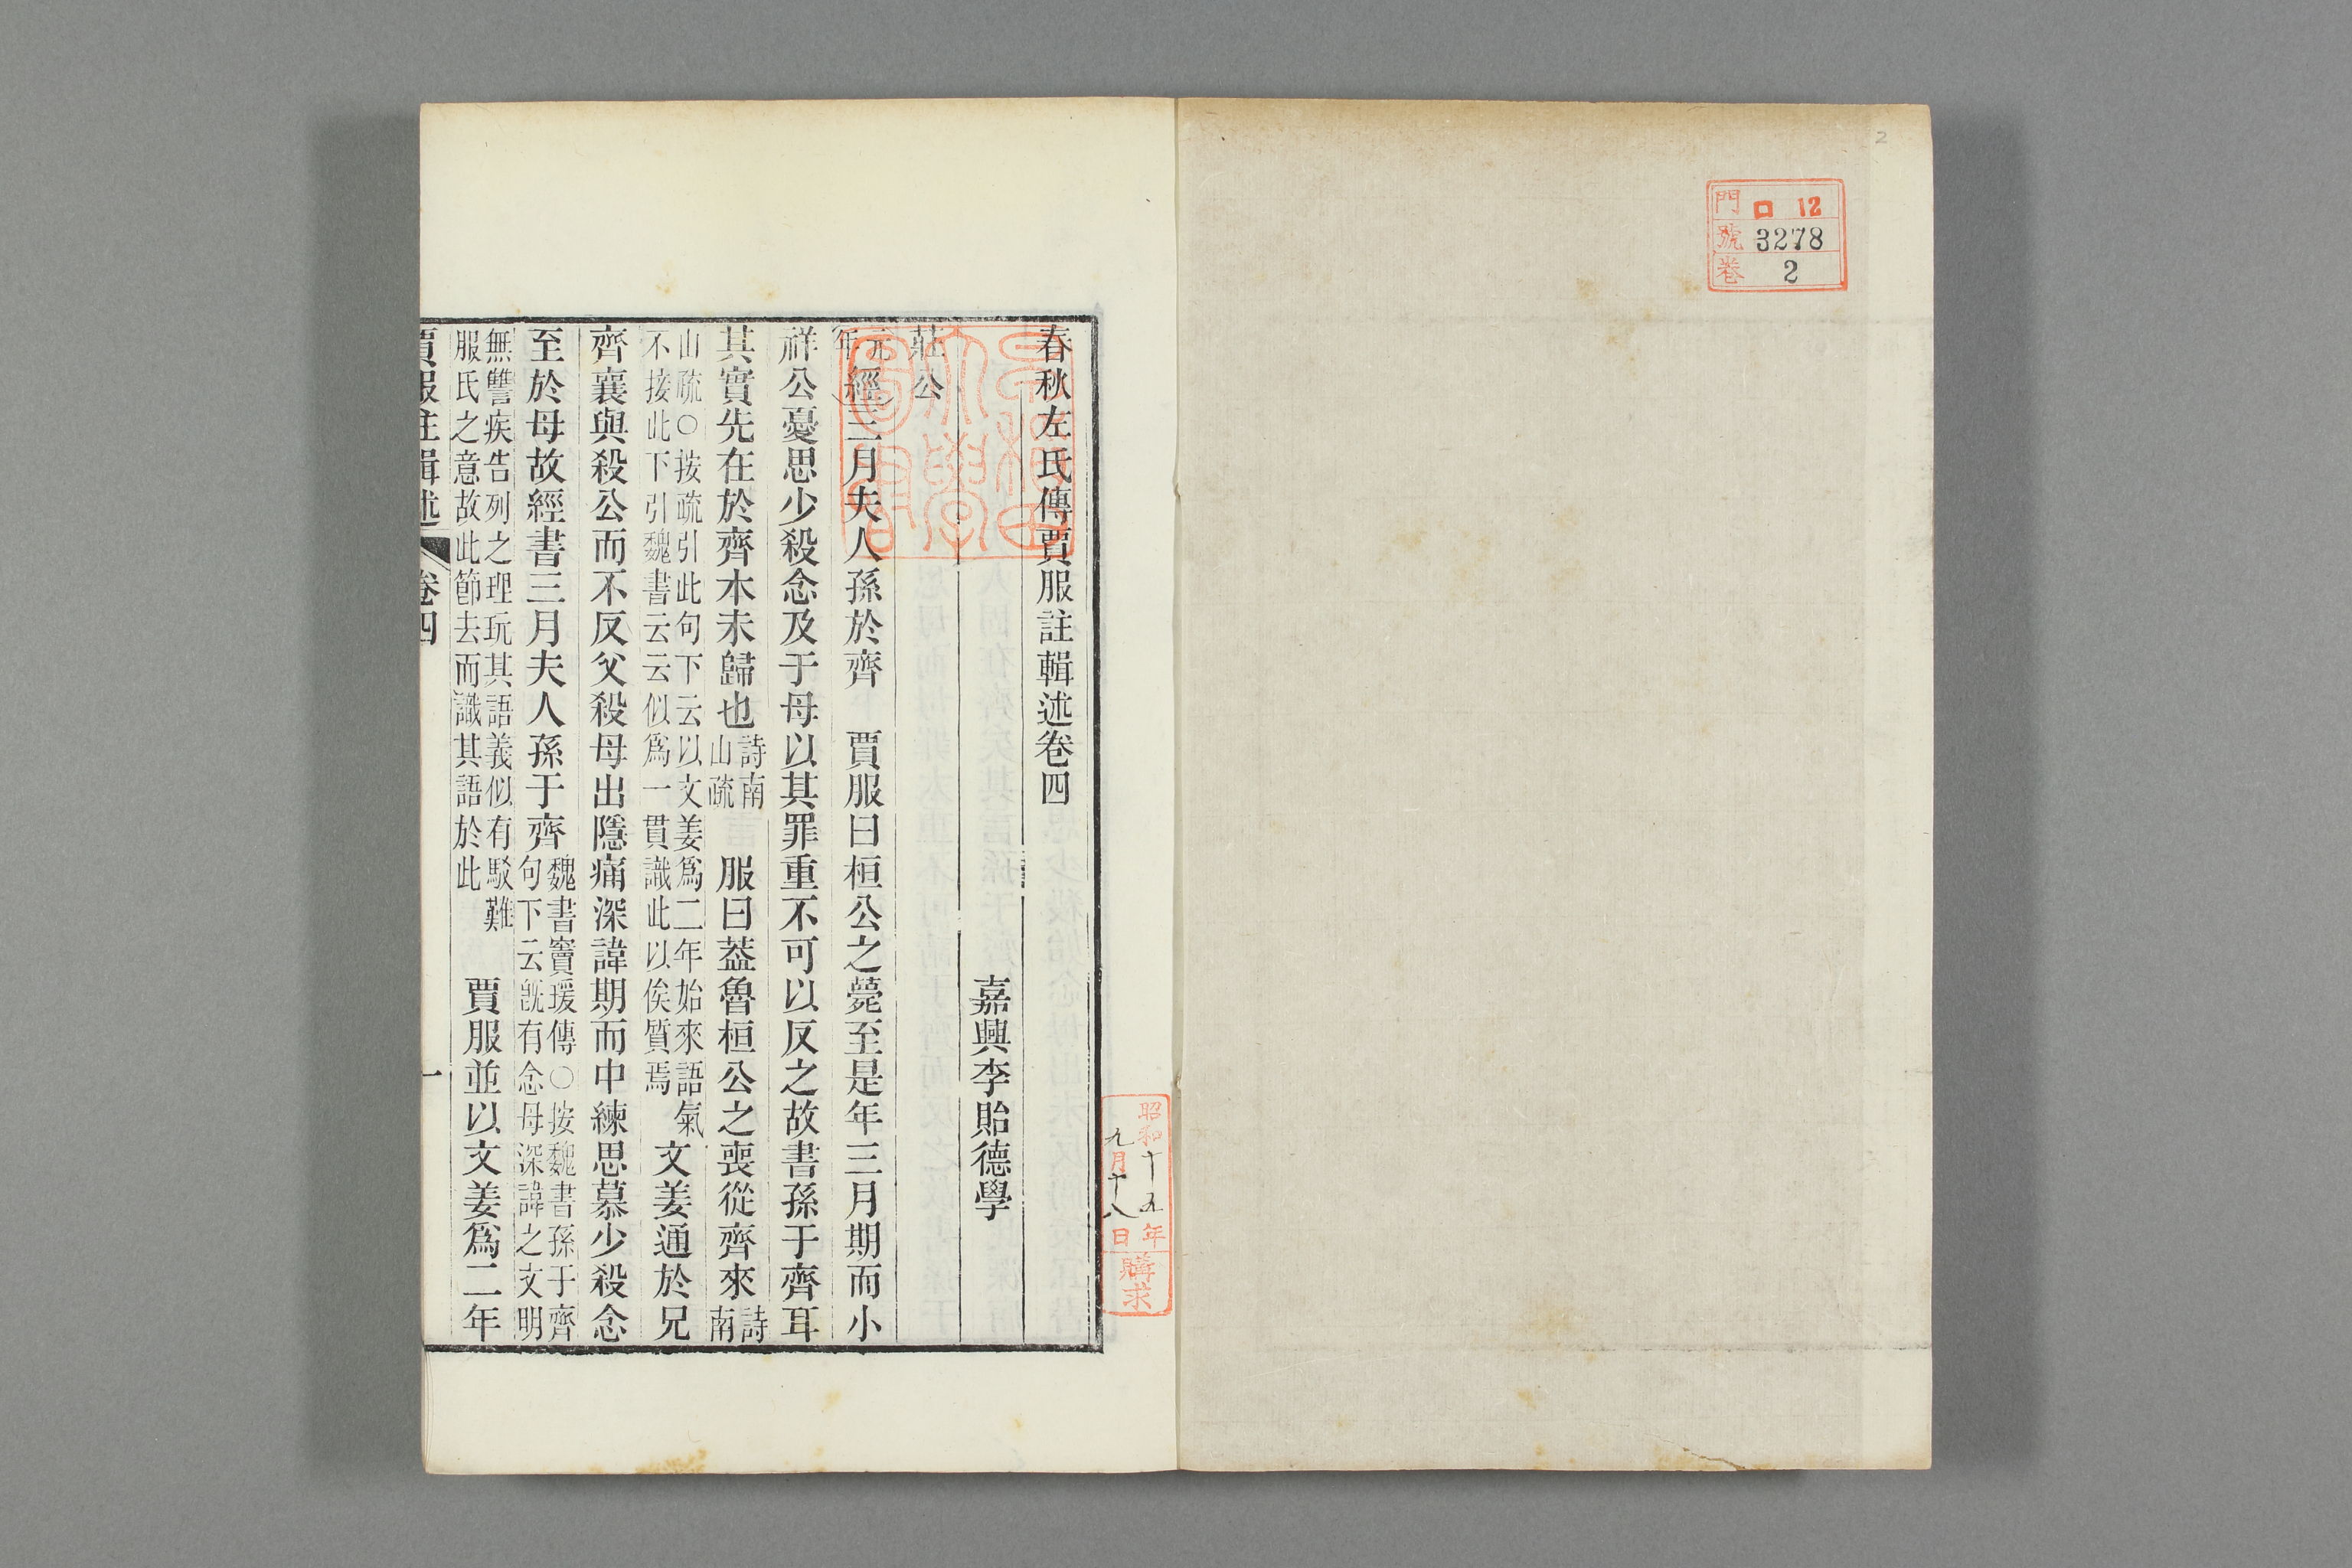 2
門 ロ 12
號 3278
卷 2
昭和十五年
九月十八日
購求
春秋左氏傳賈服註輯述卷四
嘉興李貽德學
莊公
元年經三月夫人孫於齊 賈服曰桓公之薨至是年三月期而小
祥公憂思少殺念及于母以其罪重不可以反之故書孫于齊耳
其實先在於齊本未歸也詩南山疏 服曰蓋魯桓公之喪從齊來詩南
山疏○按疏引此句下云以文姜爲二年始來語氣不接此下引魏書云云似爲一貫識此以俟質焉 文姜通於兄
齊襄與殺公而不反父殺母出隱痛深諱期而中練思慕少殺念
至於母故經書三月夫人孫于齊魏書竇瑗傳○按魏書孫于齊句下云旣有念母深諱之文明
無讐疾告列之理玩其語義似有駁難服氏之意故此節去而識其語於此 賈服並以文姜爲二年
賈服註輯述 卷四 一